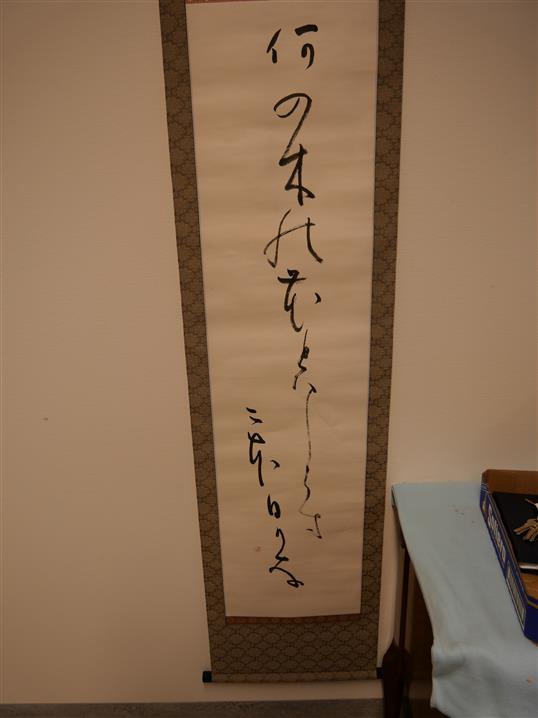 何の木の花とはしらす
にほひかな